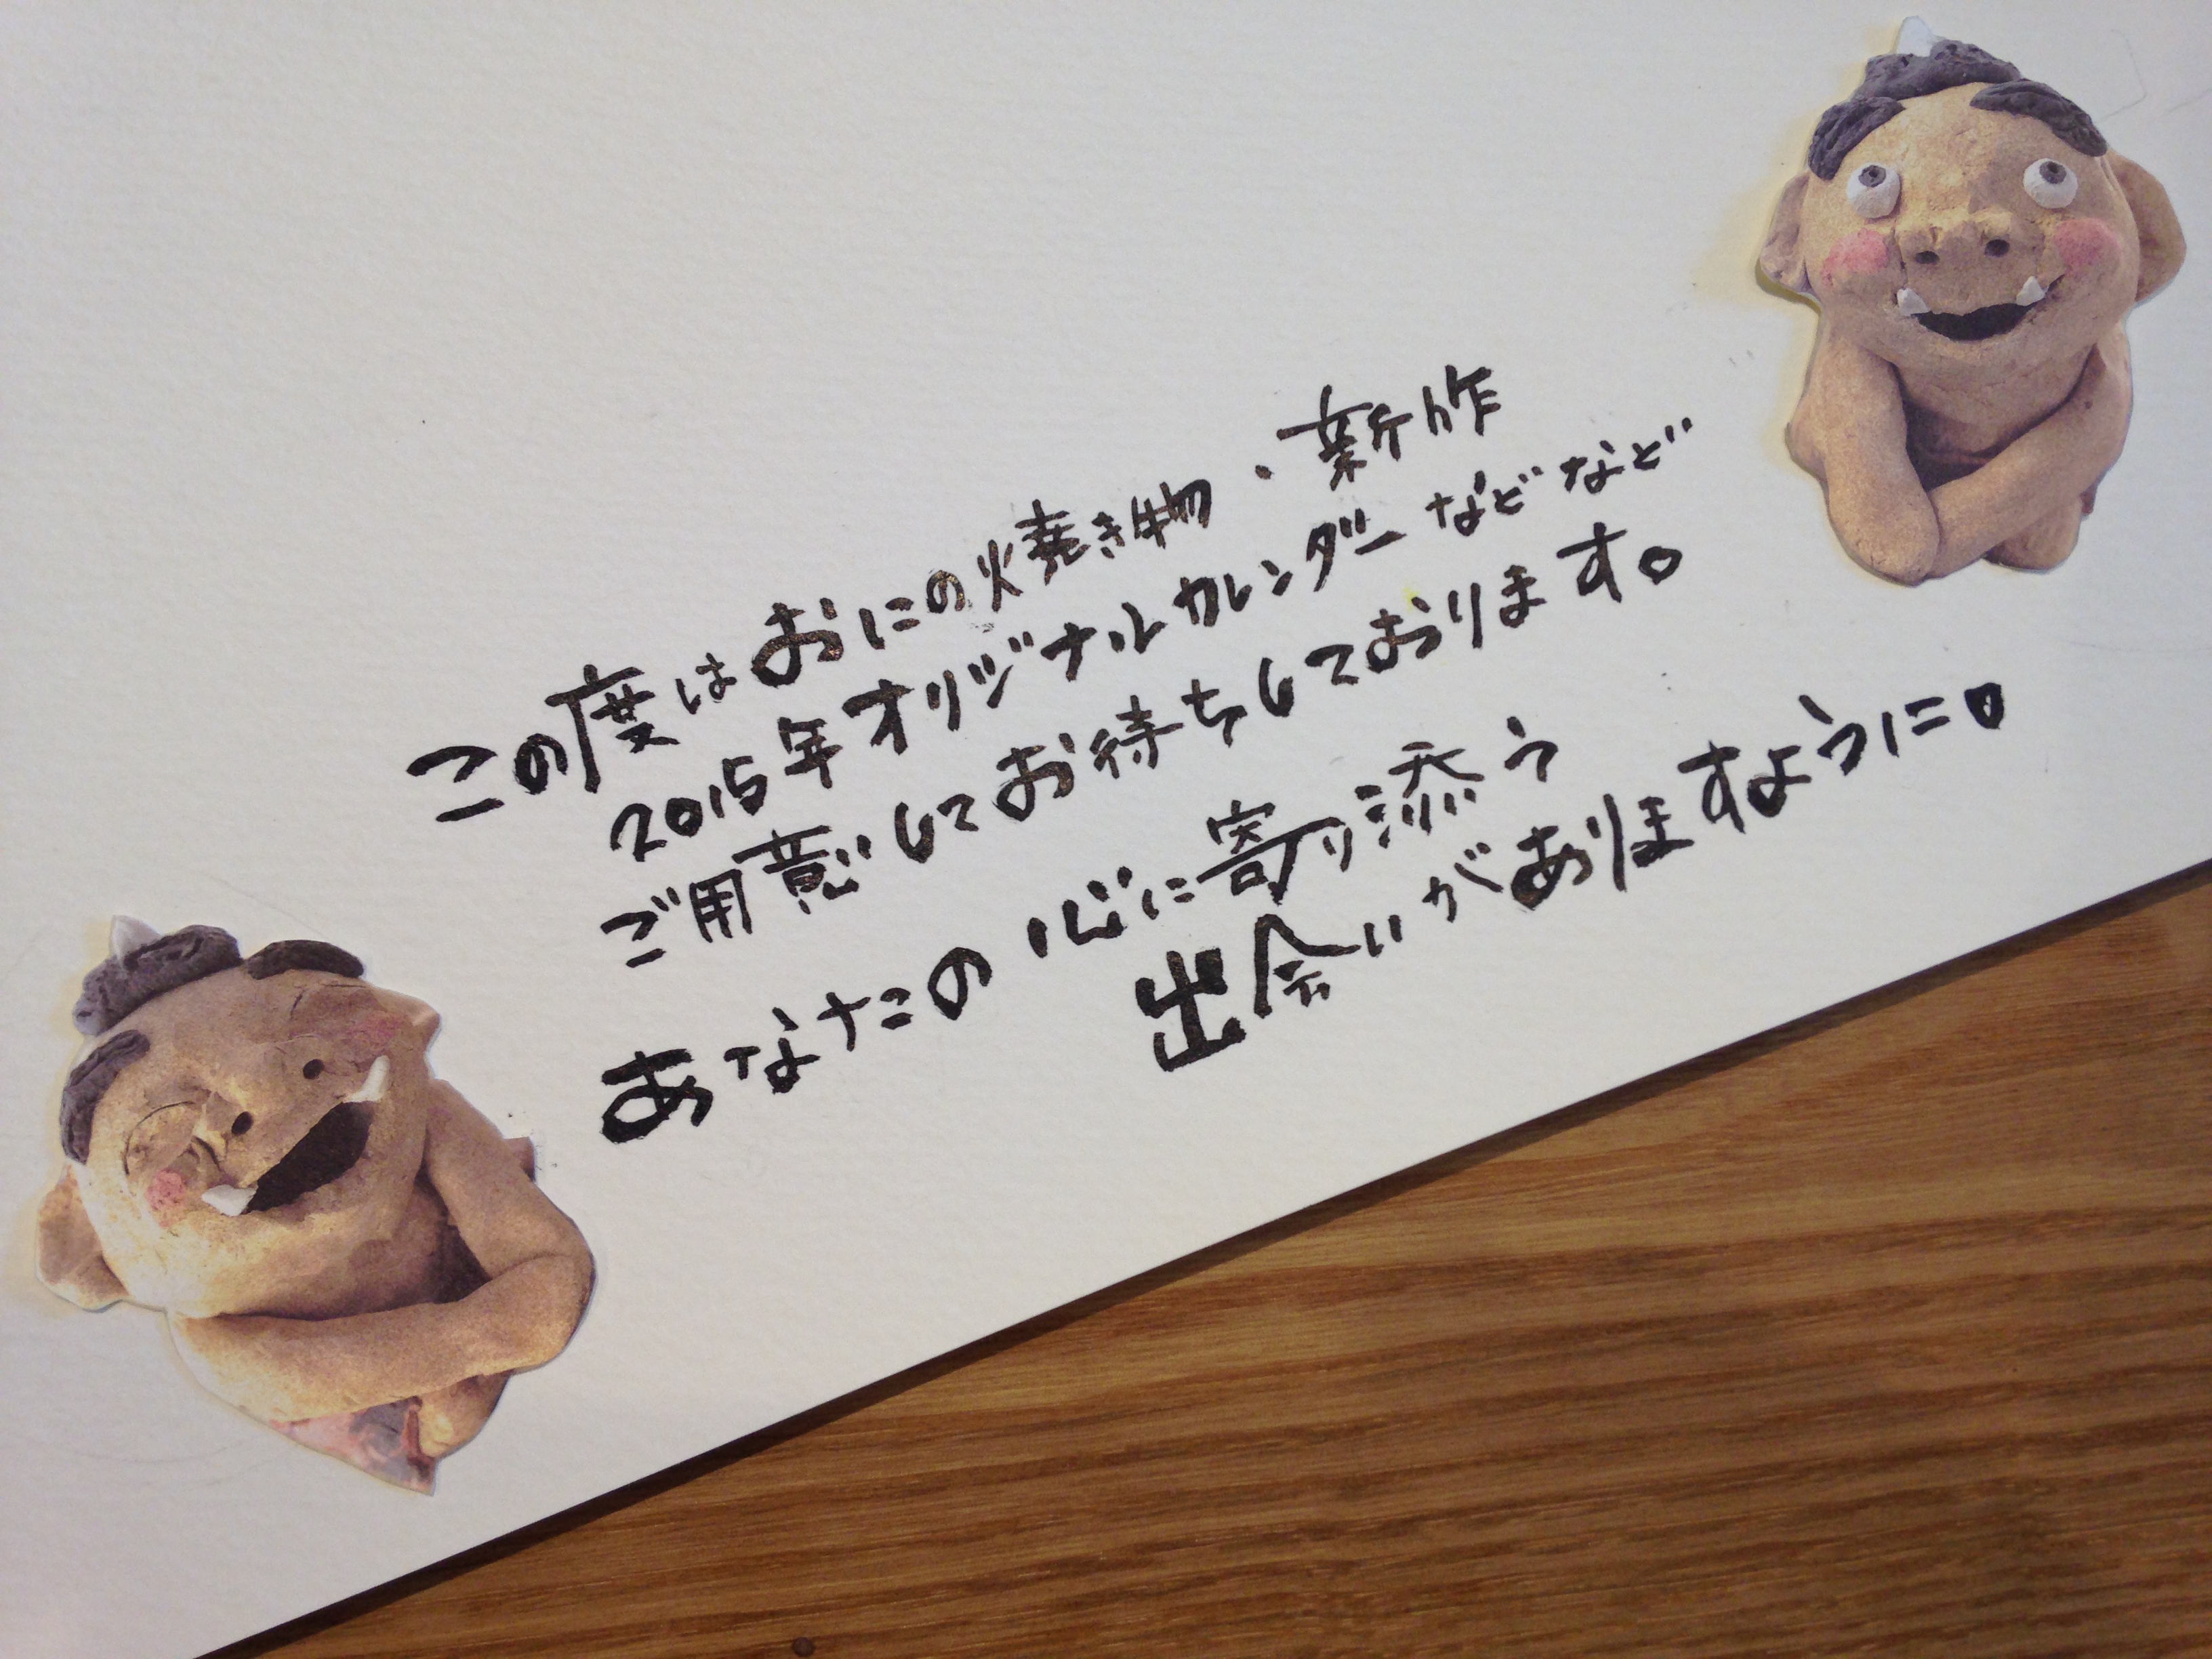 この度はおにの焼き物・新作
2015年オリジナルカレンダーなどなど
ご用意してお待ちしております。
あなたの心に寄り添う
出会いがありますように。